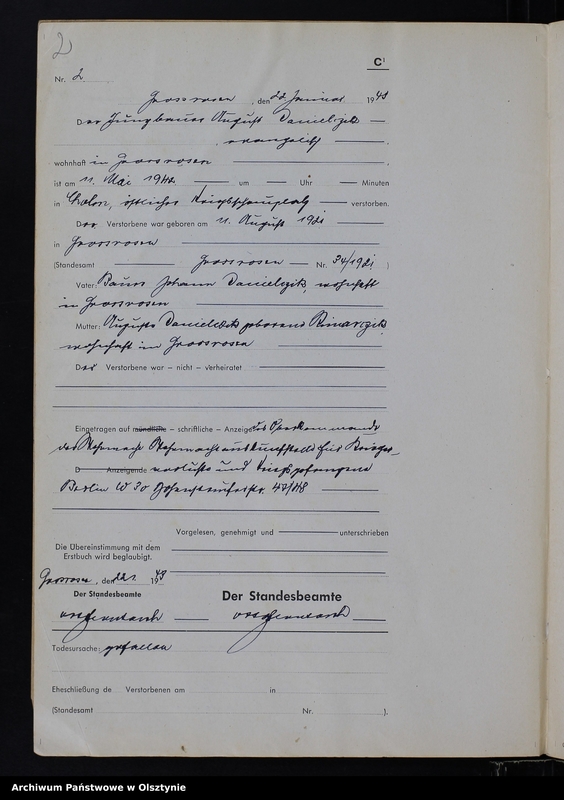 2
C¹
Nr. 2
Grossrosen, den 22. Januar 1943
Der Jungbauer August Danielzik
evangelisch
wohnhaft in Grossrosen
ist am 11. Mai 1942 um Uhr Minuten
in Cholm, östlicher Kriegsschauplatz verstorben.
Der Verstorbene war geboren am 11. August 1921
in Grossrosen
(Standesamt Grossrosen Nr. 34/1921)
Vater: Bauer Johann Danielzik, wohnhaft
in Grossrosen
Mutter: Auguste Danielzik geborene
wohnhaft in Grossrosen
Der Verstorbene war – nicht – verheiratet
Eingetragen auf mündliche – schriftliche – Anzeige des Oberkommando
der Wehrmacht Wehrmachtauskunftstelle für Krieger-
D Anzeigende verluste und Kriegsgefangene
Berlin W 30 Hohenstaufenstr. 47/48
Vorgelesen, genehmigt und unterschrieben
Die Übereinstimmung mit dem
Erstbuch wird beglaubigt.
Grossrosen, den 22.1. 1943
Der Standesbeamte
Der Standesbeamte
Todesursache: gefallen
Eheschließung de Verstorbenen am in
(Standesamt Nr. ).
Archiwum Państwowe w Olsztynie